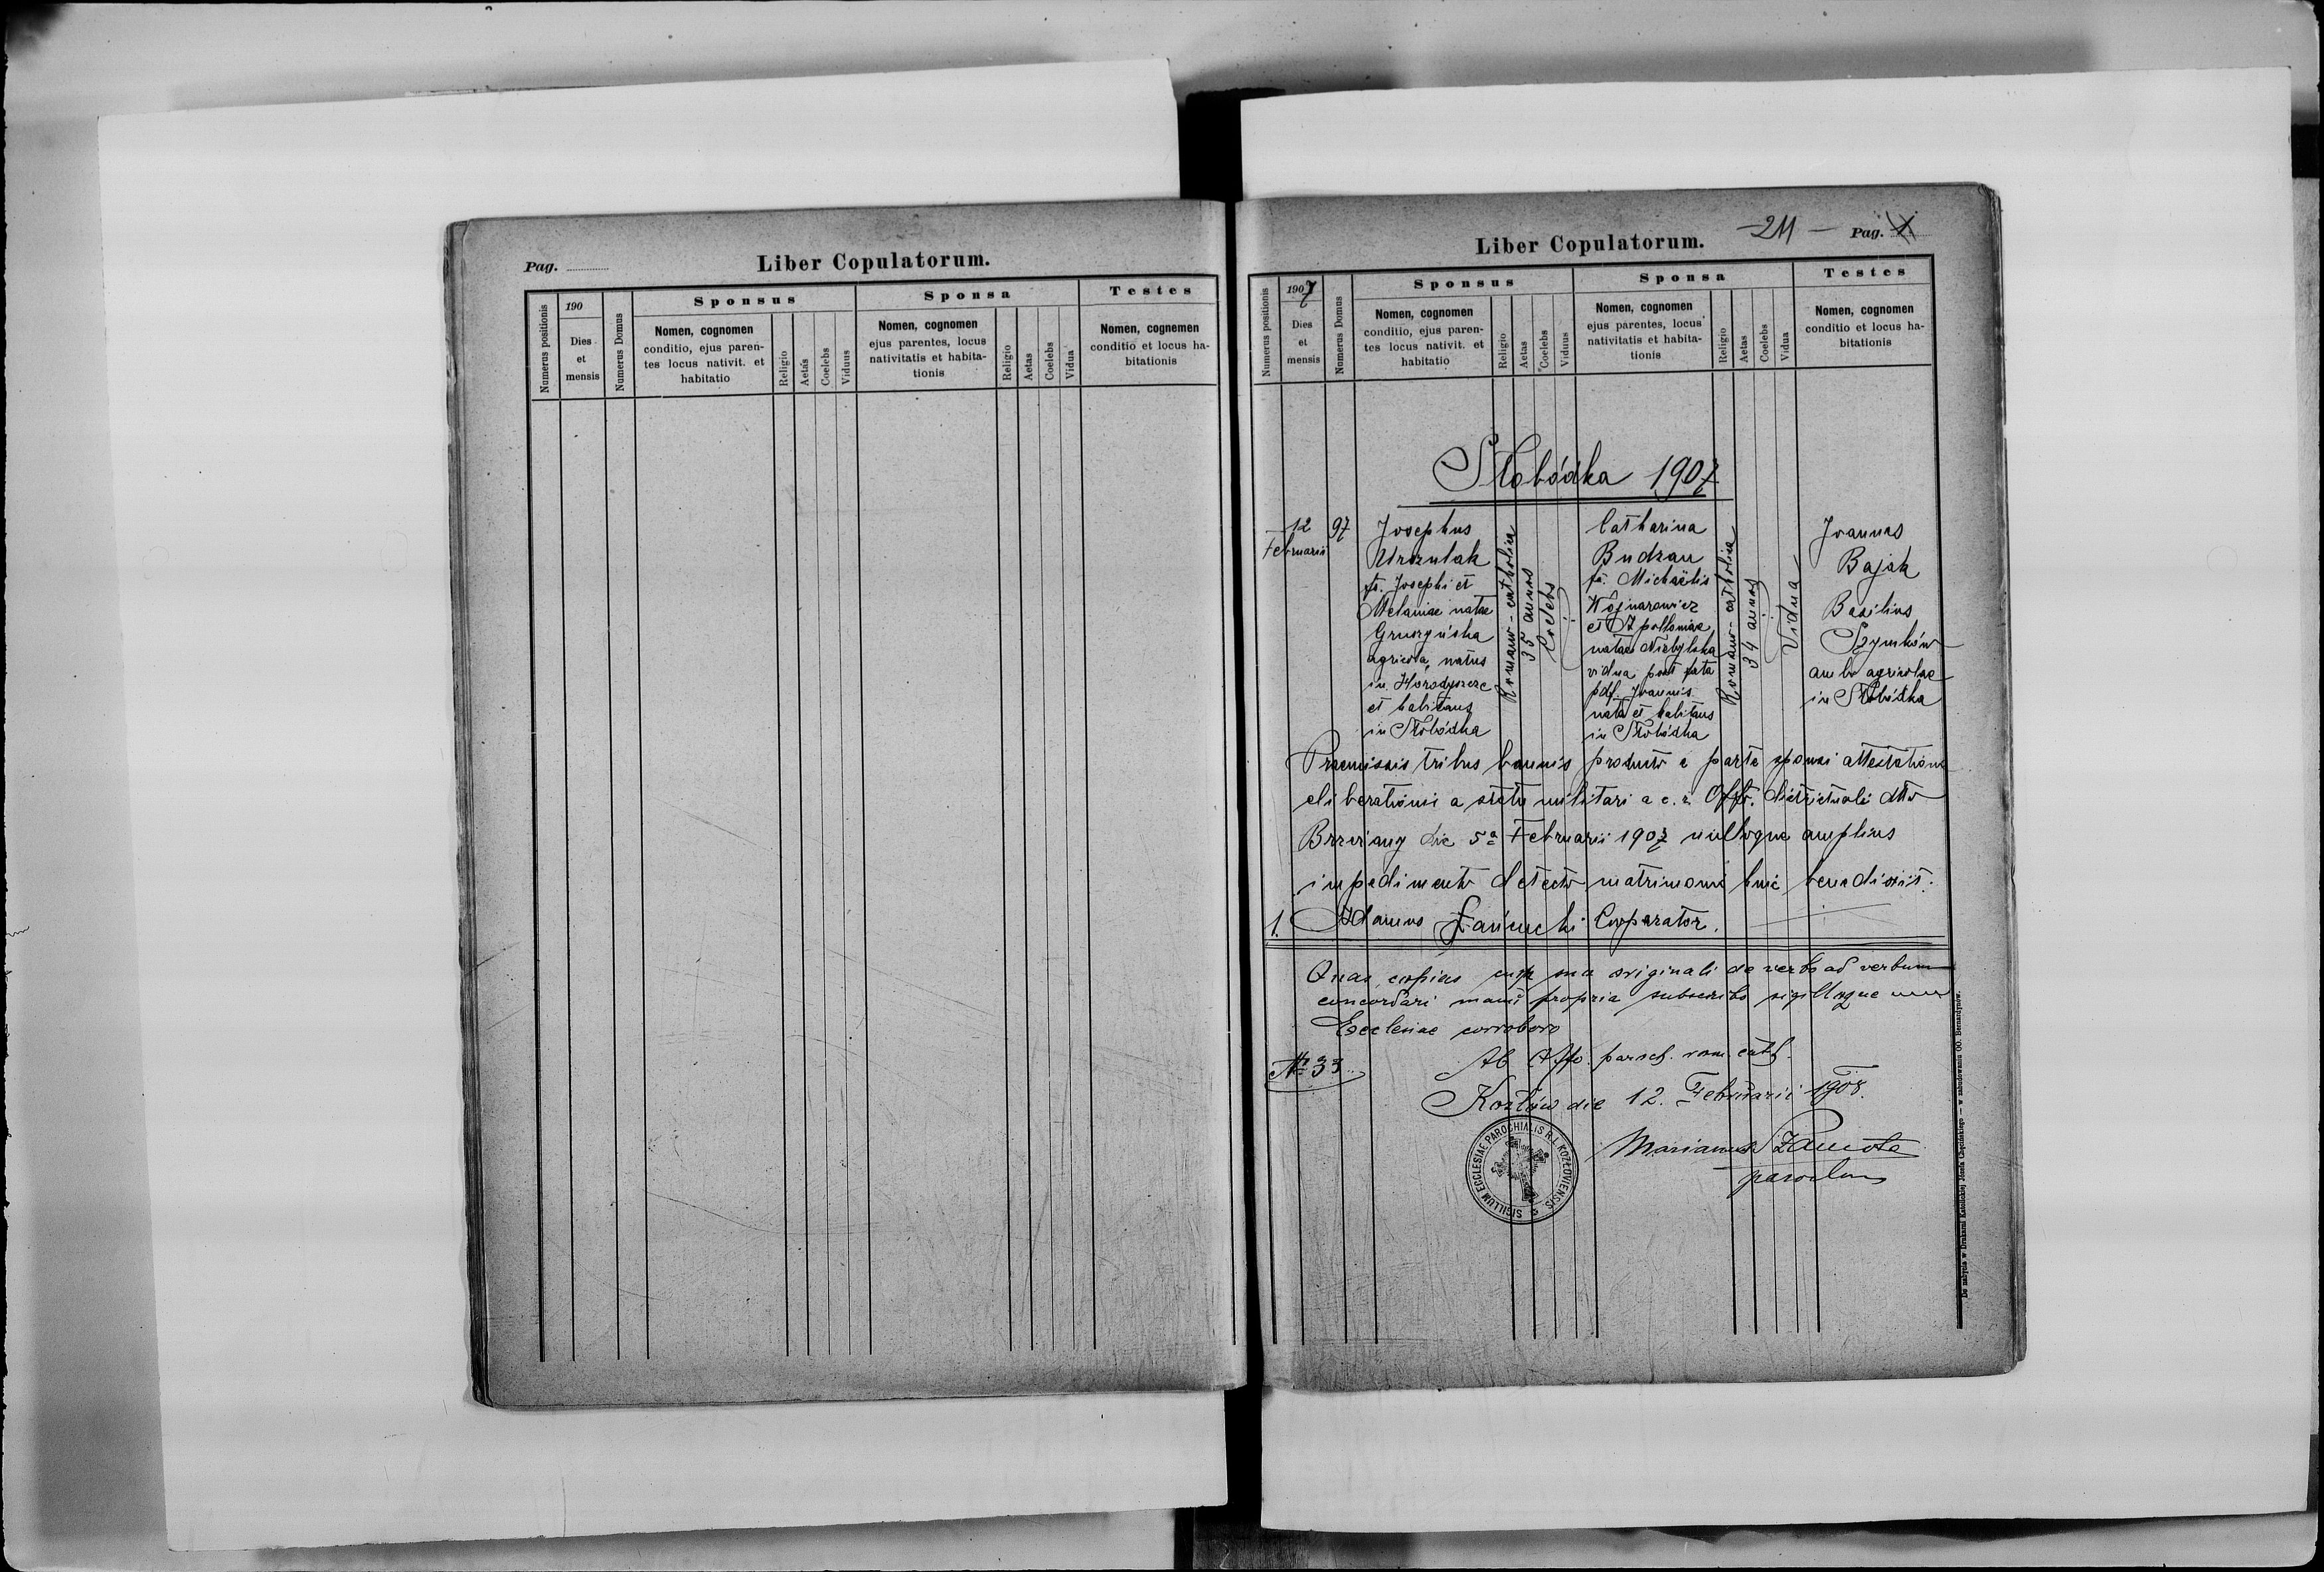 Pag.
Liber Copulatorum.
Numerus positionis
190
Dies
et
mensis
Numerus Domus
Sponsus
Nomen, cognomen
conditio, ejus paren-
tes locus nativit. et
habitatio
Religio
Aetas
Coelebs
Viduus
Sponsa
Nomen, cognomen
ejus parentes, locus
nativitatis et habita-
tionis
Religio
Aetas
Coelebs
Vidua
Testes
Nomen, cognemen
conditio et locus ha-
bitationis
Liber Copulatorum.
- 211 -
Pag. 1
Numerus positionis
1907
Dies
et
mensis
Numerus Domus
Sponsus
Nomen, cognomen
conditio, ejus paren-
tes locus nativit. et
habitatio
Religio
Aetas
Coelebs
Viduus
Sponsa
Nomen, cognomen
ejus parentes, locus
nativitatis et habita-
tionis
Religio
Aetas
Coelebs
Vidua
Testes
Nomen, cognomen
conditio et locus ha-
bitationis
Słobódka 1907
12
Februarii
97
Josephus
Urszulak
fs. Josephi et
Melaniae natae
agricola, natus
in Horodyszcze
et habitans
in Słobódka
Romano-catholica
35 annos
Coelebs
Catharina
Budzan
fa. Michaëlis
Wojnarowicz
et Apolloniae
natae Niebylska
vidua post fata
pdf. Joannis
nata et habitans
in Słobódka
Romano-catholica
34 annos
Vidua
Joannes
Bajak
Basilius
Szymków
ambo agricolae
in Słobódka
Praemissis tribus bannis producto e parte sponsi attestatione
eliberationis a statu militari a c. r. Offo. districtuali ddto
Brzeżany die 5ª Februarii 1907 nulloque amplius
impedimento detecto matrimonio huic benedixit:
1. Adamus Łańcucki Cooperator.
Quas copias cum originali de verbo ad verbum
concordari manu propria subscribo sigilloque
Ecclesiae corroboro
№ 33
Ab Offo. paroch. rom. cath.
Kozłów die 12. Februarii 1908.
Marianus Zamota
parochus
SIGILLUM ECCLESIAE PAROCHIALIS R. L. KOZŁOVIENSIS
Do nabycia w Drukarni Katolickiej Józefa Chęcińskiego — w zabudowaniu OO. Bernardynów.